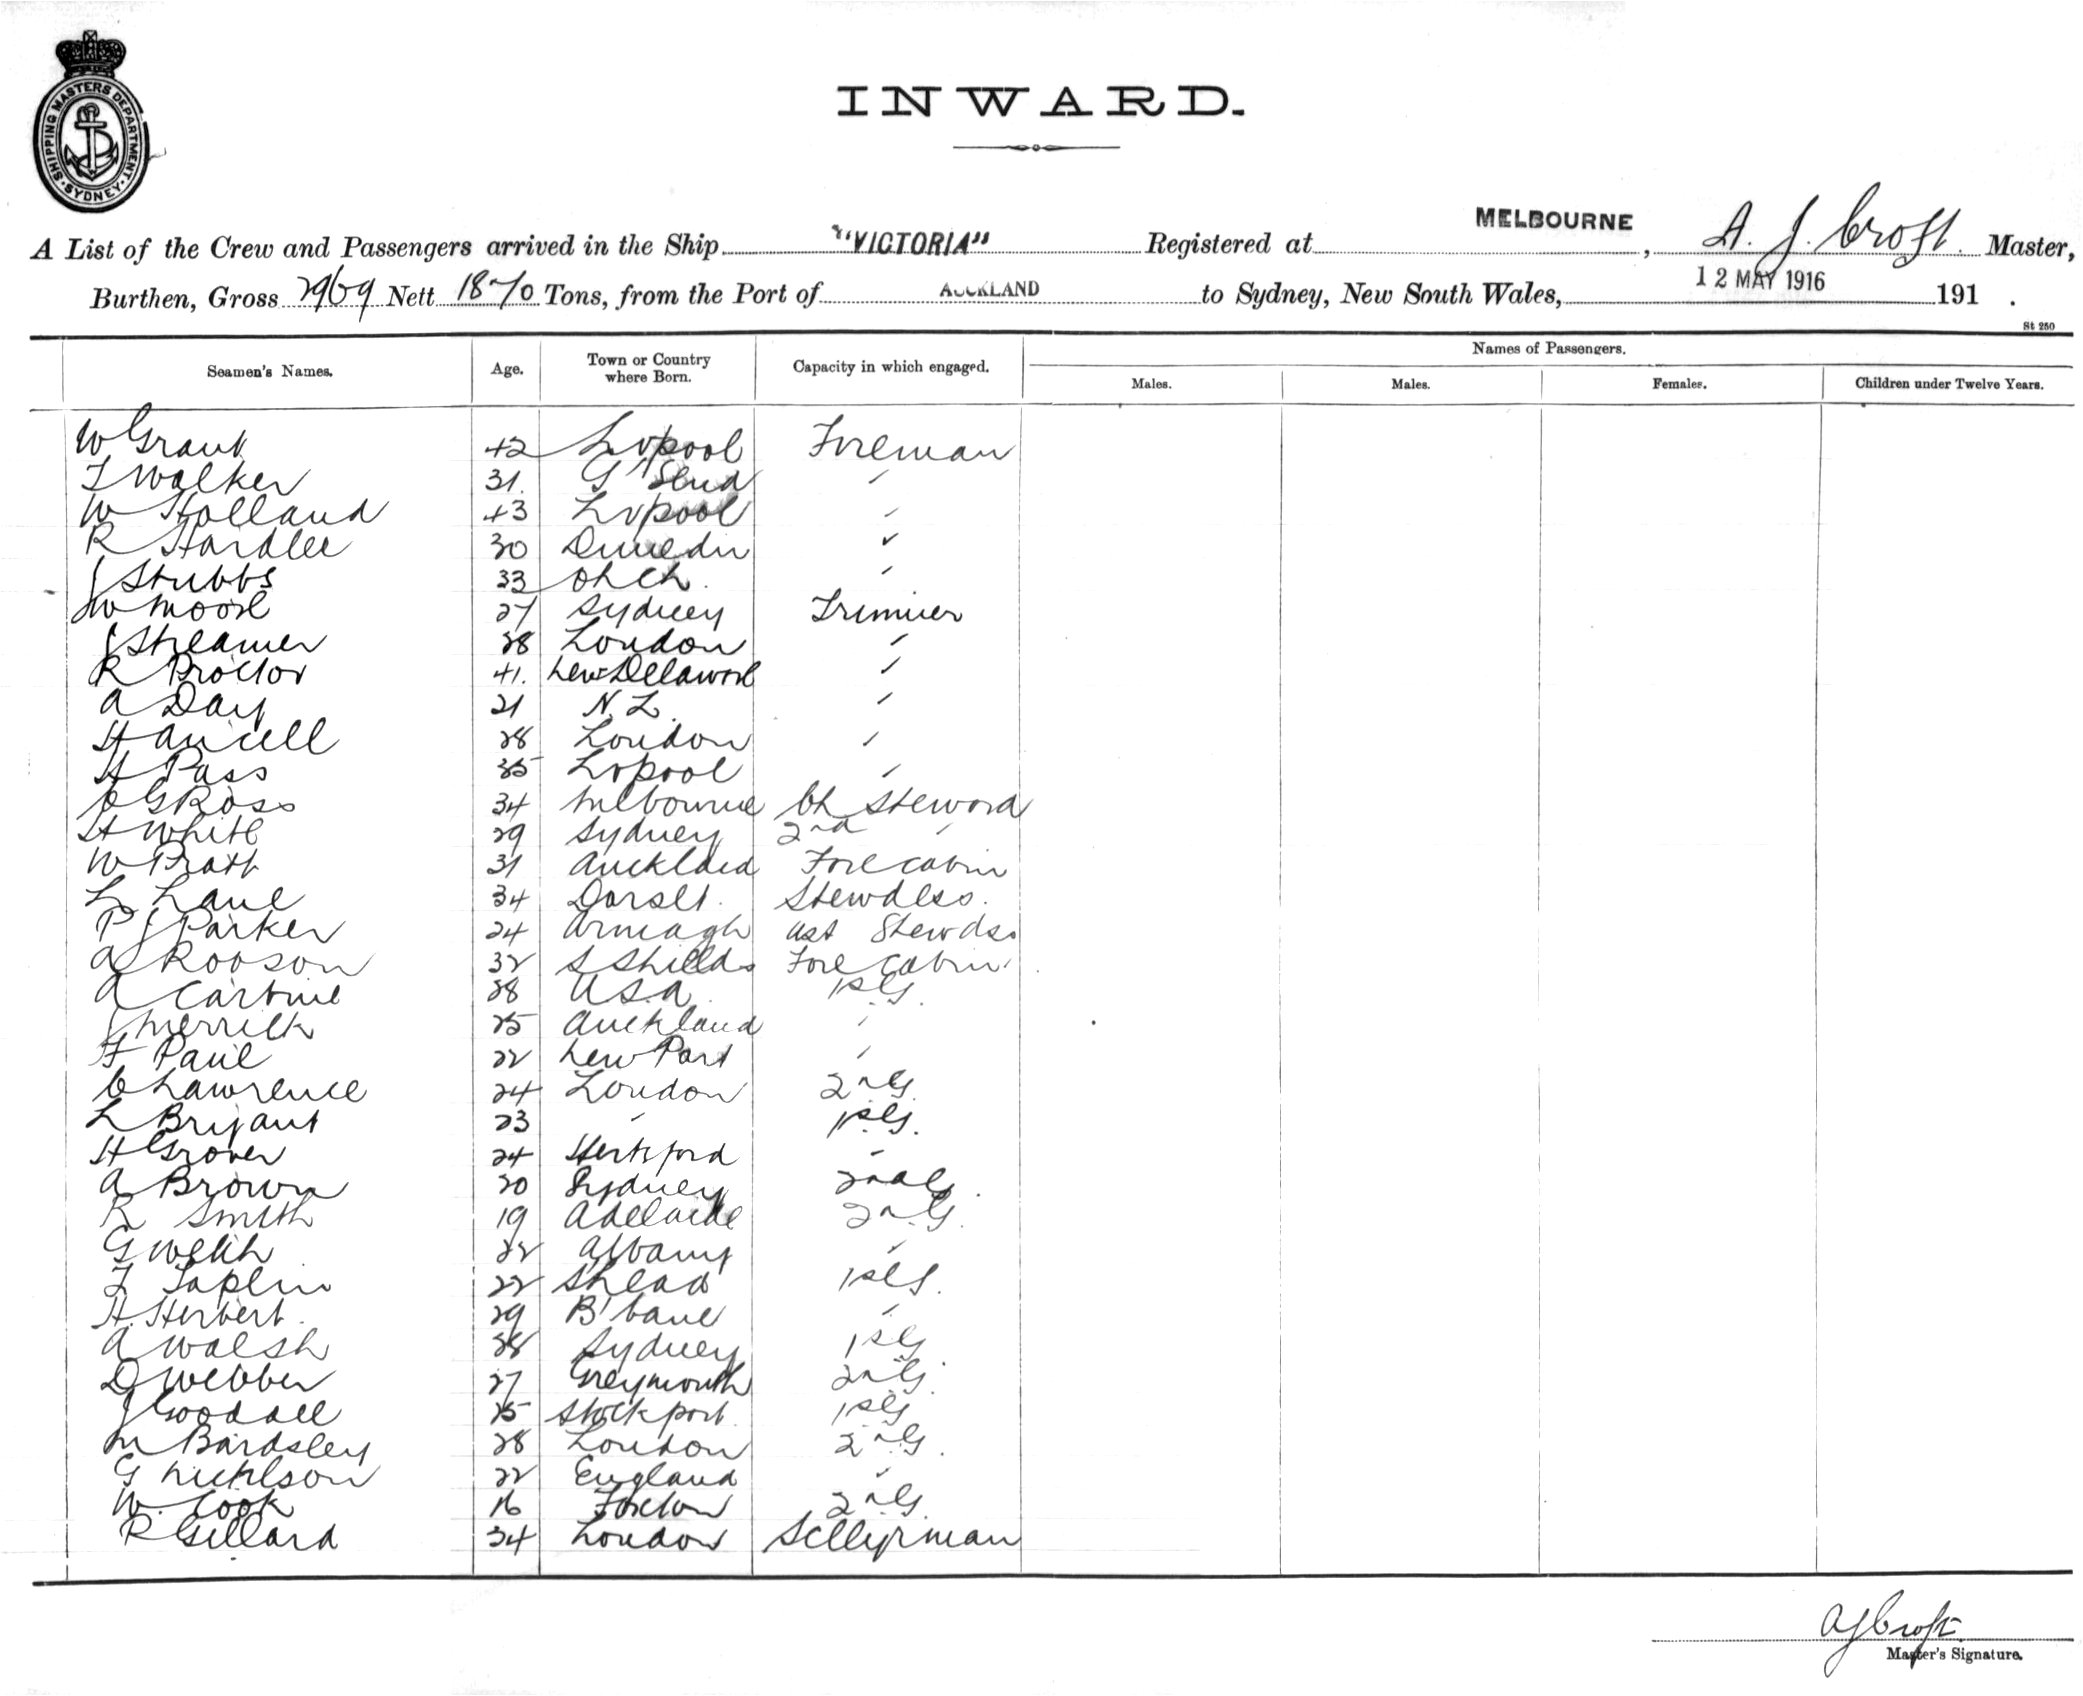 SHIPPING MASTERS DEPARTMENT · SYDNEY ·
INWARD.
A List of the Crew and Passengers arrived in the Ship "VICTORIA" Registered at MELBOURNE, A. J. Croft Master,
Burthen, Gross 2969 Nett 1870 Tons, from the Port of AUCKLAND to Sydney, New South Wales, 12 MAY 1916 191 .
St 250
Seamen's Names. Age. Town or Country where Born. Capacity in which engaged. Names of Passengers.
Males. Males. Females. Children under Twelve Years.
W Grant 42 Lvpool Fireman
T Walker 31. "
W Holland 43 Lvpool "
R Hardlee 30 Dunedin "
J Stubbs 33 Ch Ch. "
W Moore 27 Sydney Trimmer
J Streamer 28 London "
R Proctor 41. "
A Day 21 N.Z. "
H Ancell 28 London "
H Pass 35 Lvpool "
G Ross 34 Melbourne Ch Steward
H White 29 Sydney 2nd "
W Pratt 31 Auckland Fore cabin
L Lane 34 Dorset. Stewdess.
P J Parker 24 Armagh Ast Stewdss
A Robson 32 S Shields Fore Cabin
A Carbine 28 U.S.A. 1 slg.
J Merrick 25 Auckland "
F Paul 22 New Port "
C Lawrence 24 London 2nd
L Bryant 23 " 1 slg.
H Grover 24 Hertford "
A Brown 20 Sydney 2nd
R Smith 19 Adelaide 2nd
G Welch 22 Albany "
T Taplin 22 1 slg.
H. Herbert. 29 B'bane "
A Walsh 28 Sydney 1 slg
D Webber 27 Greymouth 2nd
J Goodall 25 Stockport 1 slg
M Bardsley 28 London 2nd
G Nicholson 22 England "
W. Cook 16 Foxton 2nd
R Gillard 34 London Scullyman
A J Croft
Master's Signature.